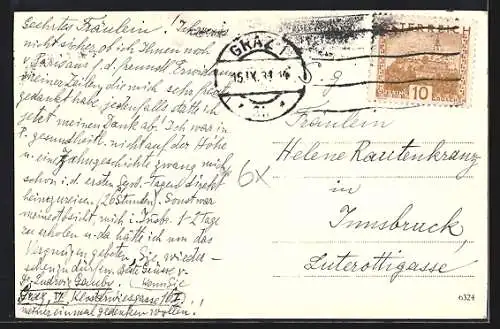 Geehrtes Fräulein! Ich weiss
nicht sicher, ob ich Ihnen noch
v. Paris aus f. d. freundl. Erwid.
meiner Zeilen, die mich sehr freute
gedankt habe, jedenfalls statte ich
jetzt meinen Dank ab! Ich war in
P. gesundheitl. nicht auf der Höhe
u. eine Zahngeschichte zwang mich
schon i. d. ersten Sept. Tagen direkt
heimzureisen. (26 Stunden). Sonst war
meine Absicht, mich i. Innsb. 1-2 Tage
zu erholen u. da hätte ich um das
Vergnügen gebeten, Sie wieder-
sehen zu dürfen. Beste Grüsse v.
Dr. Ludwig Gaube. (wenn Sie
Graz, VI. Klosterwiesgasse
meiner einmal gedenken wollen.)
GRAZ 1
15.IX.31
ÖSTERREICH
10
6x
Fräulein
Helene Rautenkranz
in
Innsbruck,
Luterottigasse
6324